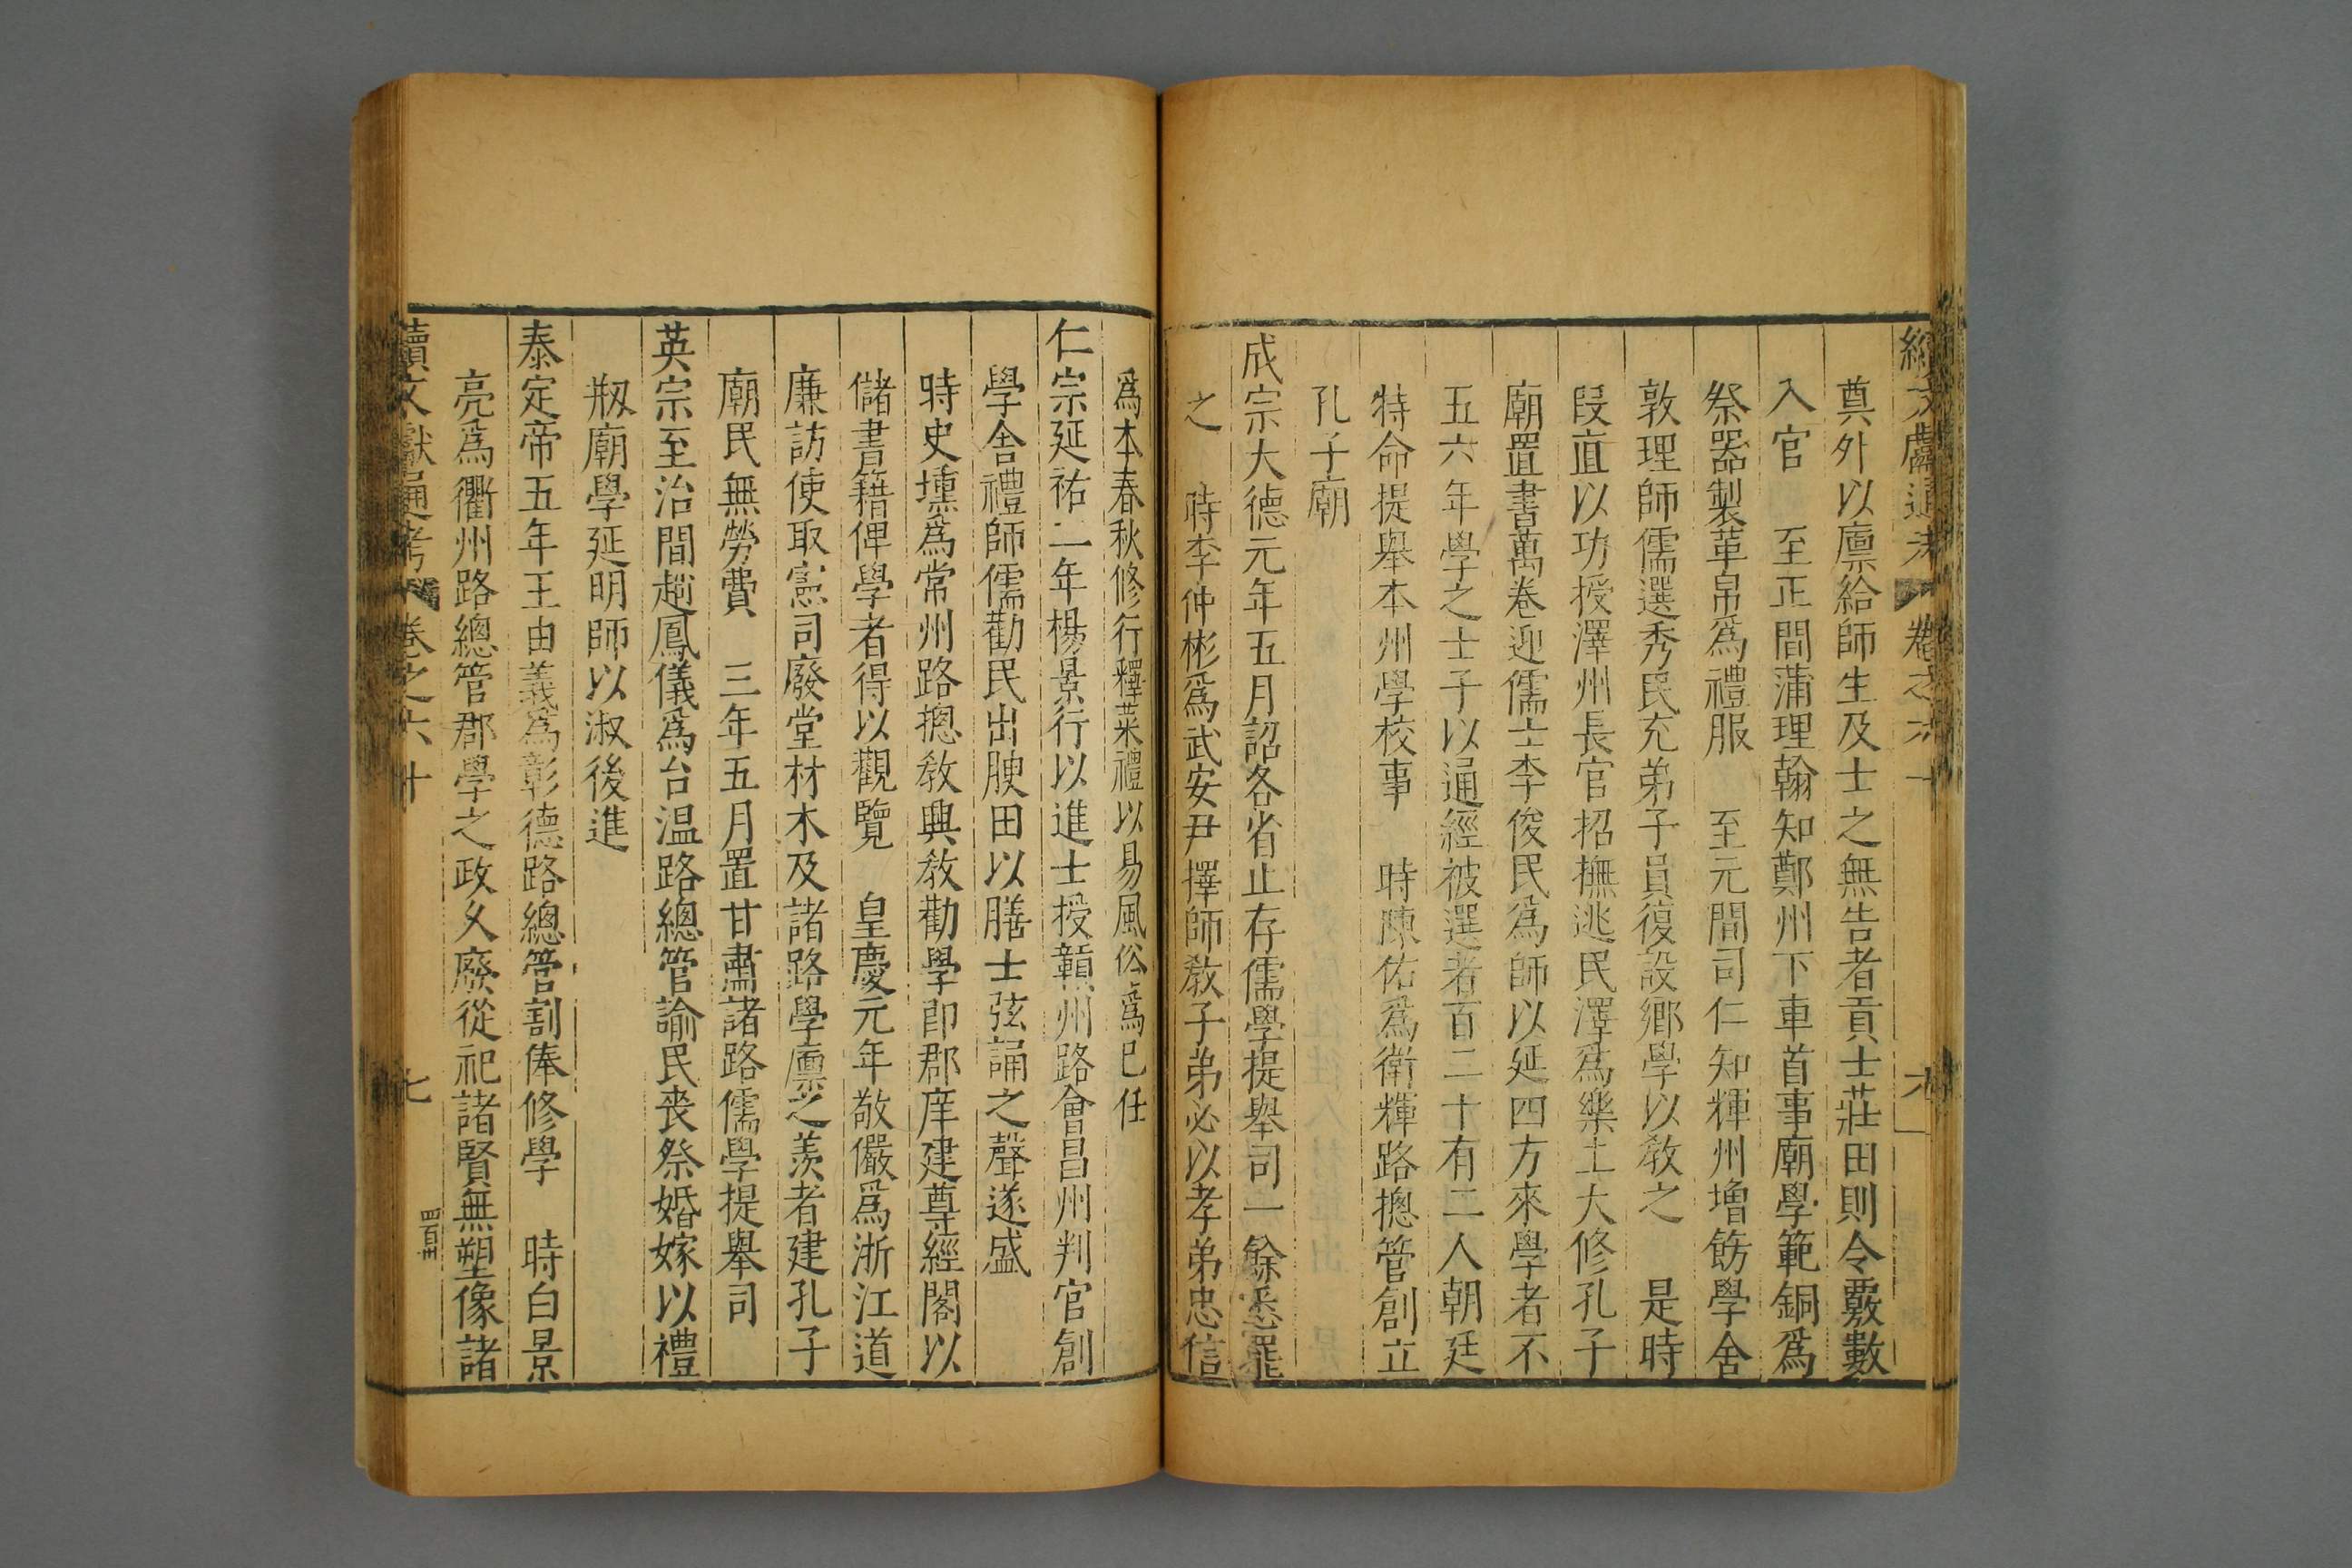 續文獻通考 卷之六十 六
奠外以廪給師生及士之無告者貢士莊田則令覈數
入官 至正間蒲理翰知鄭州下車首事廟學範銅爲
祭器製葦帛爲禮服 至元間司仁知輝州増餝學舍
敦理師儒選秀民充弟子員復設鄉學以教之 是時
段直以功授澤州長官招撫逃民澤爲樂土大修孔子
廟置書萬卷迎儒士李俊民爲師以延四方來學者不
五六年學之士子以通經被選者百二十有二人朝廷
特命提舉本州學校事 時陳佑爲衛輝路摠管創立
孔子廟
成宗大德元年五月詔各省止存儒學提舉司一餘悉罷
之 時李仲彬爲武安尹擇師教子弟必以孝弟忠信
爲本春秋修行釋菜禮以易風俗爲已任
仁宗延祐二年楊景行以進士授贑州路會昌州判官創
學舍禮師儒勸民出腴田以膳士弦誦之聲遂盛
時史壎爲常州路摠教興教勸學即郡庠建尊經閣以
儲書籍俾學者得以觀覽 皇慶元年敬儼爲浙江道
廉訪使取憲司廢堂材木及諸路學廪之羨者建孔子
廟民無勞費 三年五月置甘肅諸路儒學提舉司
英宗至治間趙鳳儀爲台温路總管諭民喪祭婚嫁以禮
剏廟學延明師以淑後進
泰定帝五年王由義爲彰德路總管割俸修學 時白景
亮爲衢州路總管郡學之政乆廢從祀諸賢無塑像諸
續文獻通考 卷之六十 七